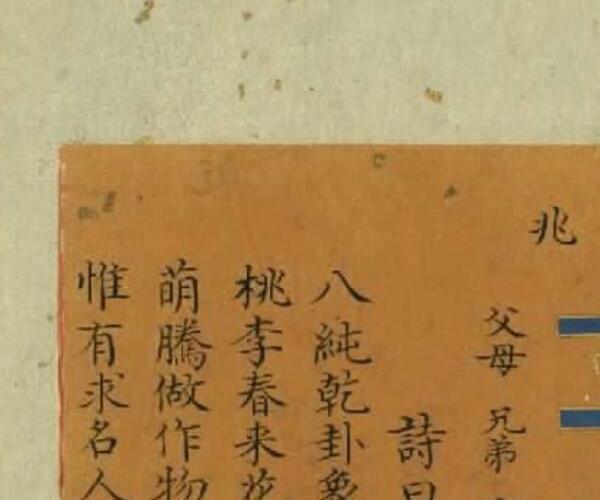 兆
父母 兄弟
詩曰
八純乾卦象
桃李春来花
萌騰做作物
惟有求名人